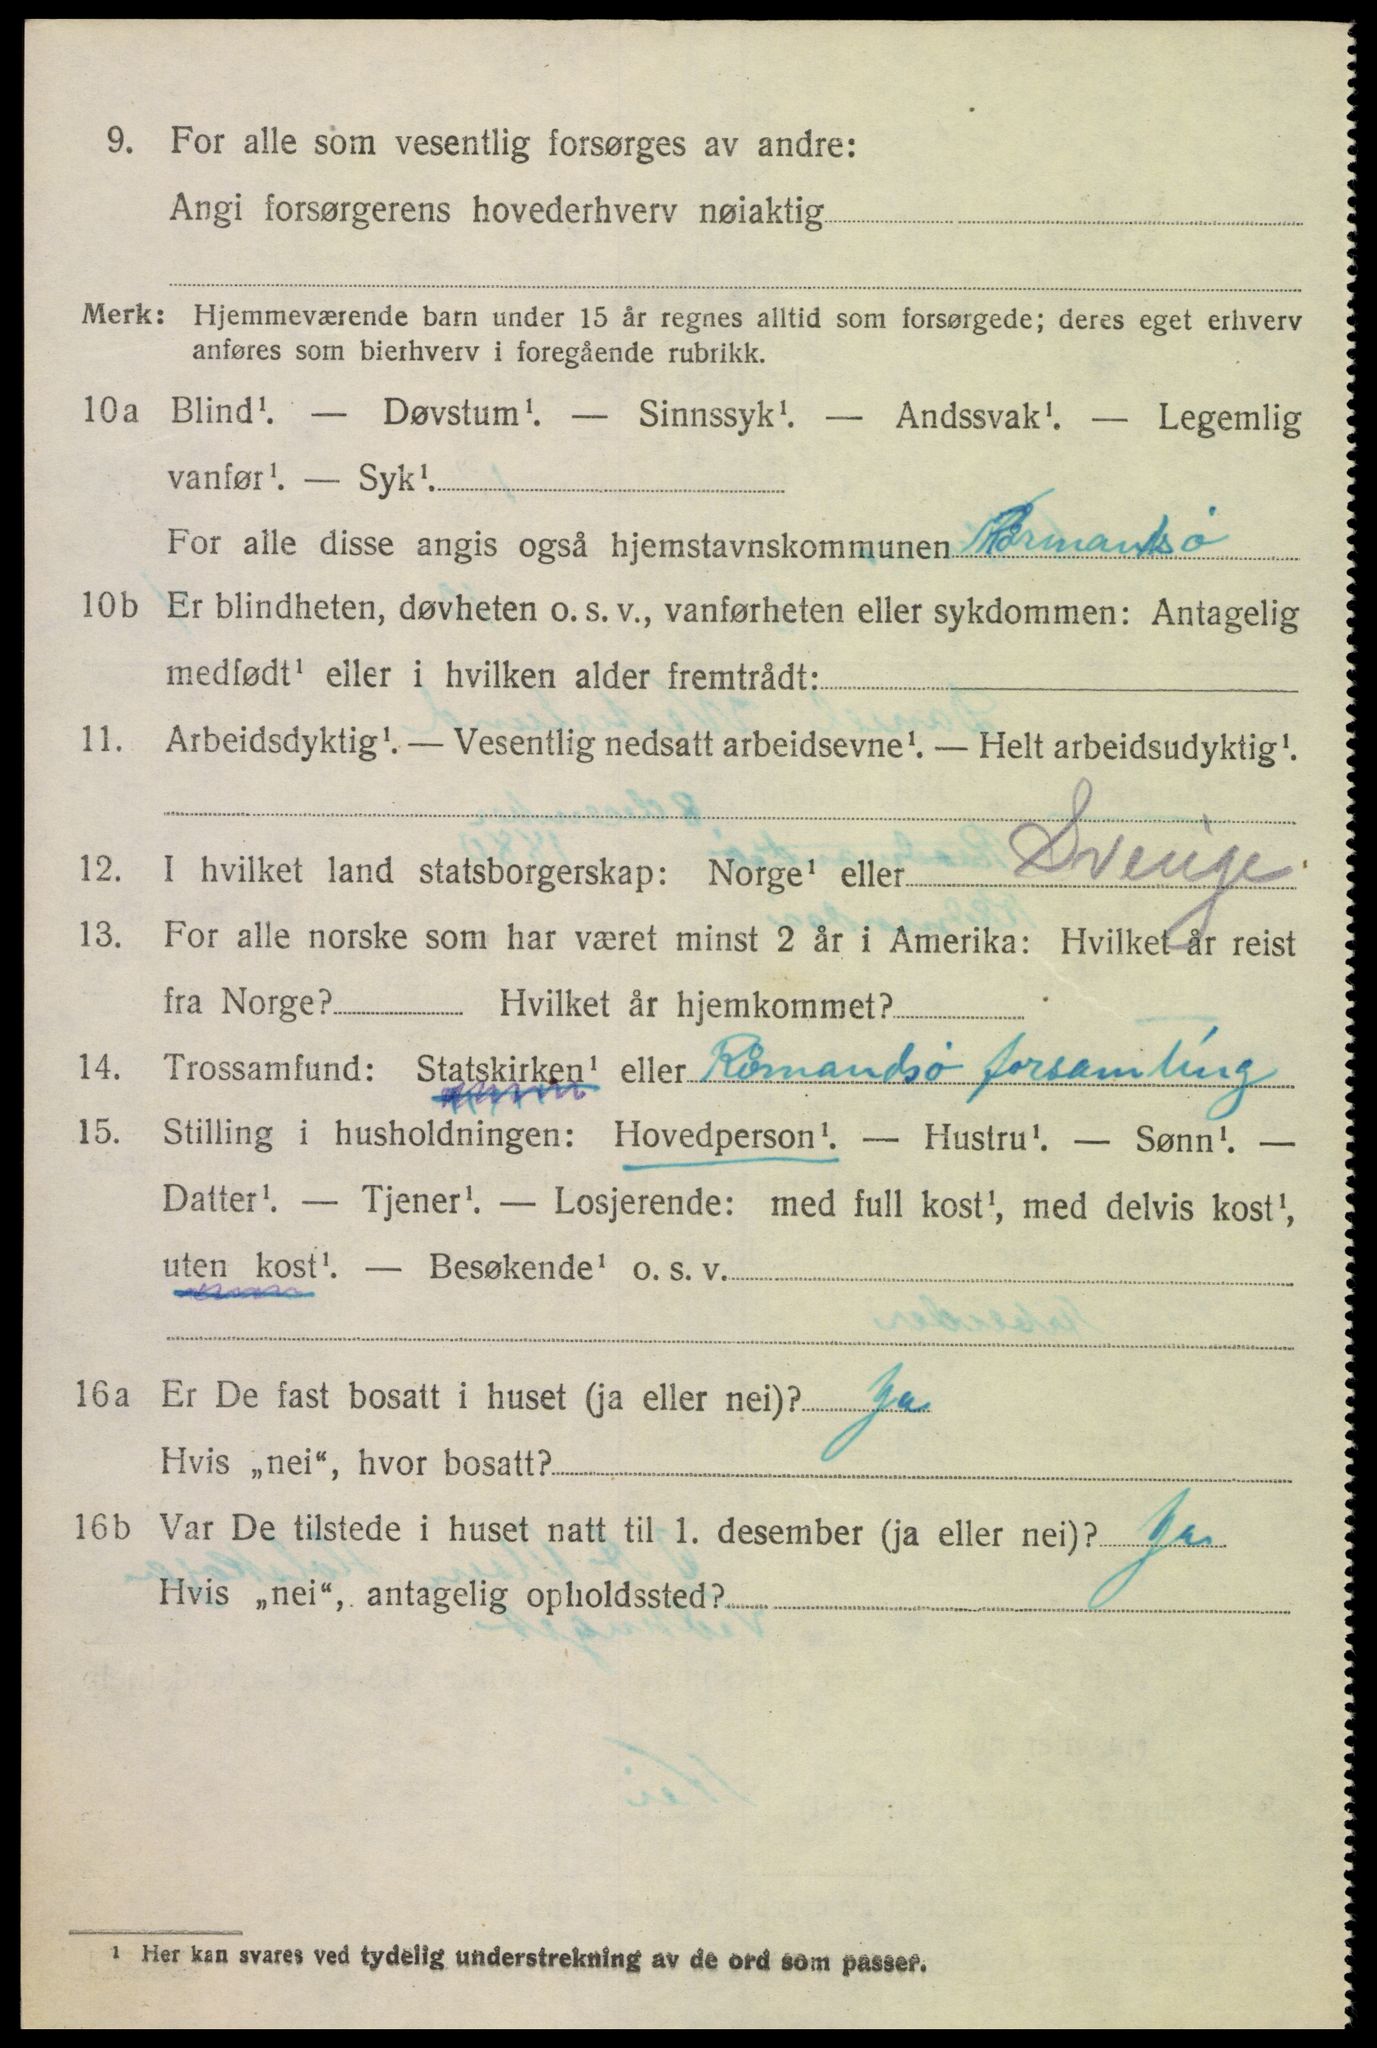 9. For alle som vesentlig forsørges av andre:
Angi forsørgerens hovederhverv nøiaktig
Merk: Hjemmeværende barn under 15 år regnes alltid som forsørgede; deres eget erhverv
anføres som bierhverv i foregående rubrikk.
10a Blind¹. — Døvstum¹. — Sinnssyk¹. — Andssvak¹. — Legemlig
vanfør¹. — Syk¹.
For alle disse angis også hjemstavnskommunen
10b Er blindheten, døvheten o. s. v., vanførheten eller sykdommen: Antagelig
medfødt¹ eller i hvilken alder fremtrådt:
11. Arbeidsdyktig¹. — Vesentlig nedsatt arbeidsevne¹. — Helt arbeidsudyktig¹.
12. I hvilket land statsborgerskap: Norge¹ eller Sverige
13. For alle norske som har været minst 2 år i Amerika: Hvilket år reist
fra Norge? Hvilket år hjemkommet?
14. Trossamfund: Statskirken¹ eller Rømandsø forsamling
15. Stilling i husholdningen: Hovedperson¹. — Hustru¹. — Sønn¹. —
Datter¹. — Tjener¹. — Losjerende: med full kost¹, med delvis kost¹,
uten kost¹. — Besøkende¹ o. s. v.
16a Er De fast bosatt i huset (ja eller nei)? Ja
Hvis „nei“, hvor bosatt?
16b Var De tilstede i huset natt til 1. desember (ja eller nei)? Ja
Hvis „nei“, antagelig opholdssted?
¹ Her kan svares ved tydelig understrekning av de ord som passer.